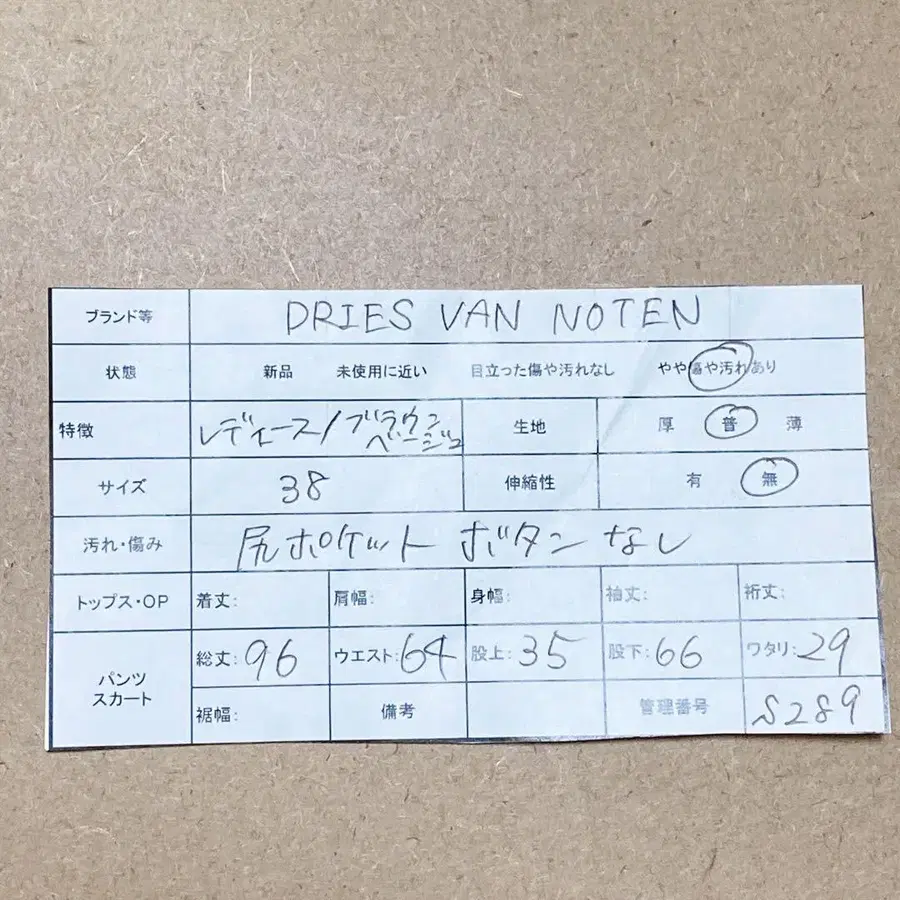 ブランド等 DRIES VAN NOTEN
状態 新品 未使用に近い 目立った傷や汚れなし やや傷や汚れあり
特徴 レディース/ブラウン ベージュ 生地 厚 普 薄
サイズ 38 伸縮性 有 無
汚れ・傷み 尻ポケット ボタンなし
トップス・OP 着丈: 肩幅: 身幅: 袖丈: 裄丈:
パンツ スカート 総丈:96 ウエスト:64 股上:35 股下:66 ワタリ:29
裾幅: 備考 管理番号 S289